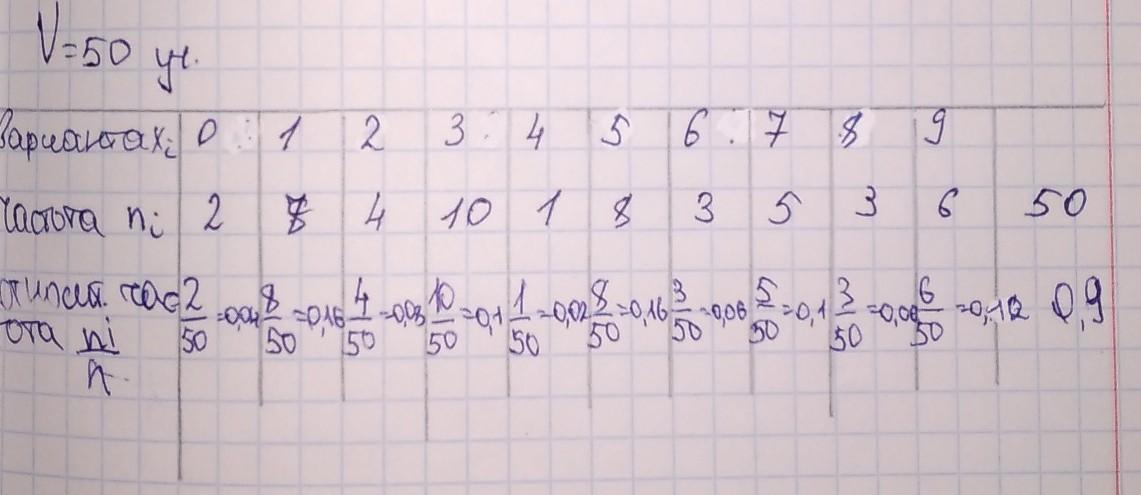 V=50 уч.
Варианта xi 0 1 2 3 4 5 6 7 8 9
Частота ni 2 8 4 10 1 8 3 5 3 6 50
относит. час 2/50 =0,04 8/50 =0,16 4/50 =0,08 10/50 =0,1 1/50 =0,02 8/50 =0,16 3/50 =0,06 5/50 =0,1 3/50 =0,06 6/50 =0,12 0,9
ота ni/n